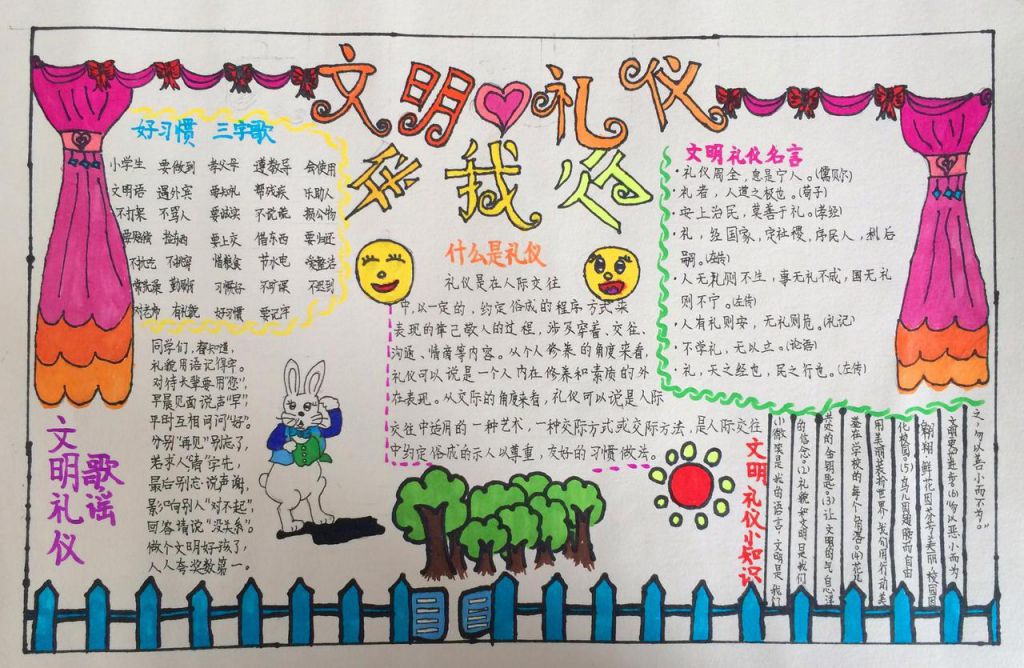 文明礼仪
我行
好习惯 三字歌
小学生 要做到 孝父母 遵教导 会使用
文明语 遇外宾 要有礼 帮残疾 乐助人
不打架 不骂人 要诚实 不说谎 损公物
要赔偿 捡东西 要上交 借东西 要归还
不挑吃 不挑穿 惜粮食 节水电
习惯好 不旷课 不迟到
有礼貌 好习惯 要记牢
同学们，
礼貌用语记得牢。
对待大辈要用“您”，
早晨见面说声“早”，
平时互相问问“好”。
分别“再见”别忘了，
若求人“请”字先，
最后别忘说声谢，
影响别人“对不起”，
回答请说“没关系”。
做个文明好孩子，
人人夸奖数第一。
文明礼仪
歌谣
什么是礼仪
礼仪是在人际交往
中，以一定的，约定俗成的程序方式来
表现的律己敬人的过程，涉及穿着、交往、
沟通、情商等内容。从个人修养的角度来看，
礼仪可以说是一个人内在修养和素质的外
在表现。从交际的角度来看，礼仪可以说是人际
交往中适用的一种艺术，一种交际方式或交际方法，是人际交往
中约定俗成的示人以尊重，友好的习惯做法。
文明礼仪名言
·礼仪周全，息是宁人。(儒贝尔)
·礼者，人道之极也。(荀子)
·安上治民，莫善于礼。(孝经)
·礼，经国家，定社稷，序民人，利后
嗣。(左传)
·人无礼则不生，事无礼不成，国无礼
则不宁。(左传)
·人有礼则安，无礼则危。(礼记)
·不学礼，无以立。(论语)
·礼，天之经也，民之行也。(左传)
文明礼仪小知识
微笑是我的语言，文明是我们
的信念。(2)礼貌和文明是我们
共处的金钥匙。(3)让文明的气息洋
溢在学校的每个角落。(4)花儿
用美丽装扮世界，我们用行动美
化校园。(5)鸟儿因翅膀而自由
翱翔，鲜花因芬芳而美丽，校园因
文明而进步。(6)勿以恶小而为
之，勿以善小而不为。”